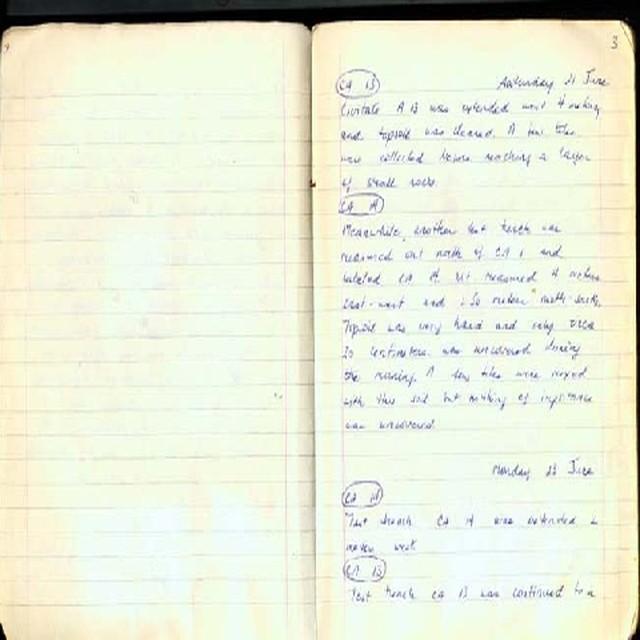 3
CA B Saturday 21 June
Civitate A B was extended west 4 meters
and topsoil was cleared. A few tiles
were collected before reaching a layer
of small rocks.
CA A
Meanwhile, another test trench was
measured out north of CA 1 and
labeled CA A. It measured 4 meters
east-west and 1.50 meters north-south.
Topsoil was very hard and only
20 centimeters was uncovered during
the morning. A few tiles were mixed
with this soil but nothing of importance
was uncovered.
Monday 23 June
CA A
Test trench CA A was extended 2
meters west
CA B
Test trench CA B was continued to a